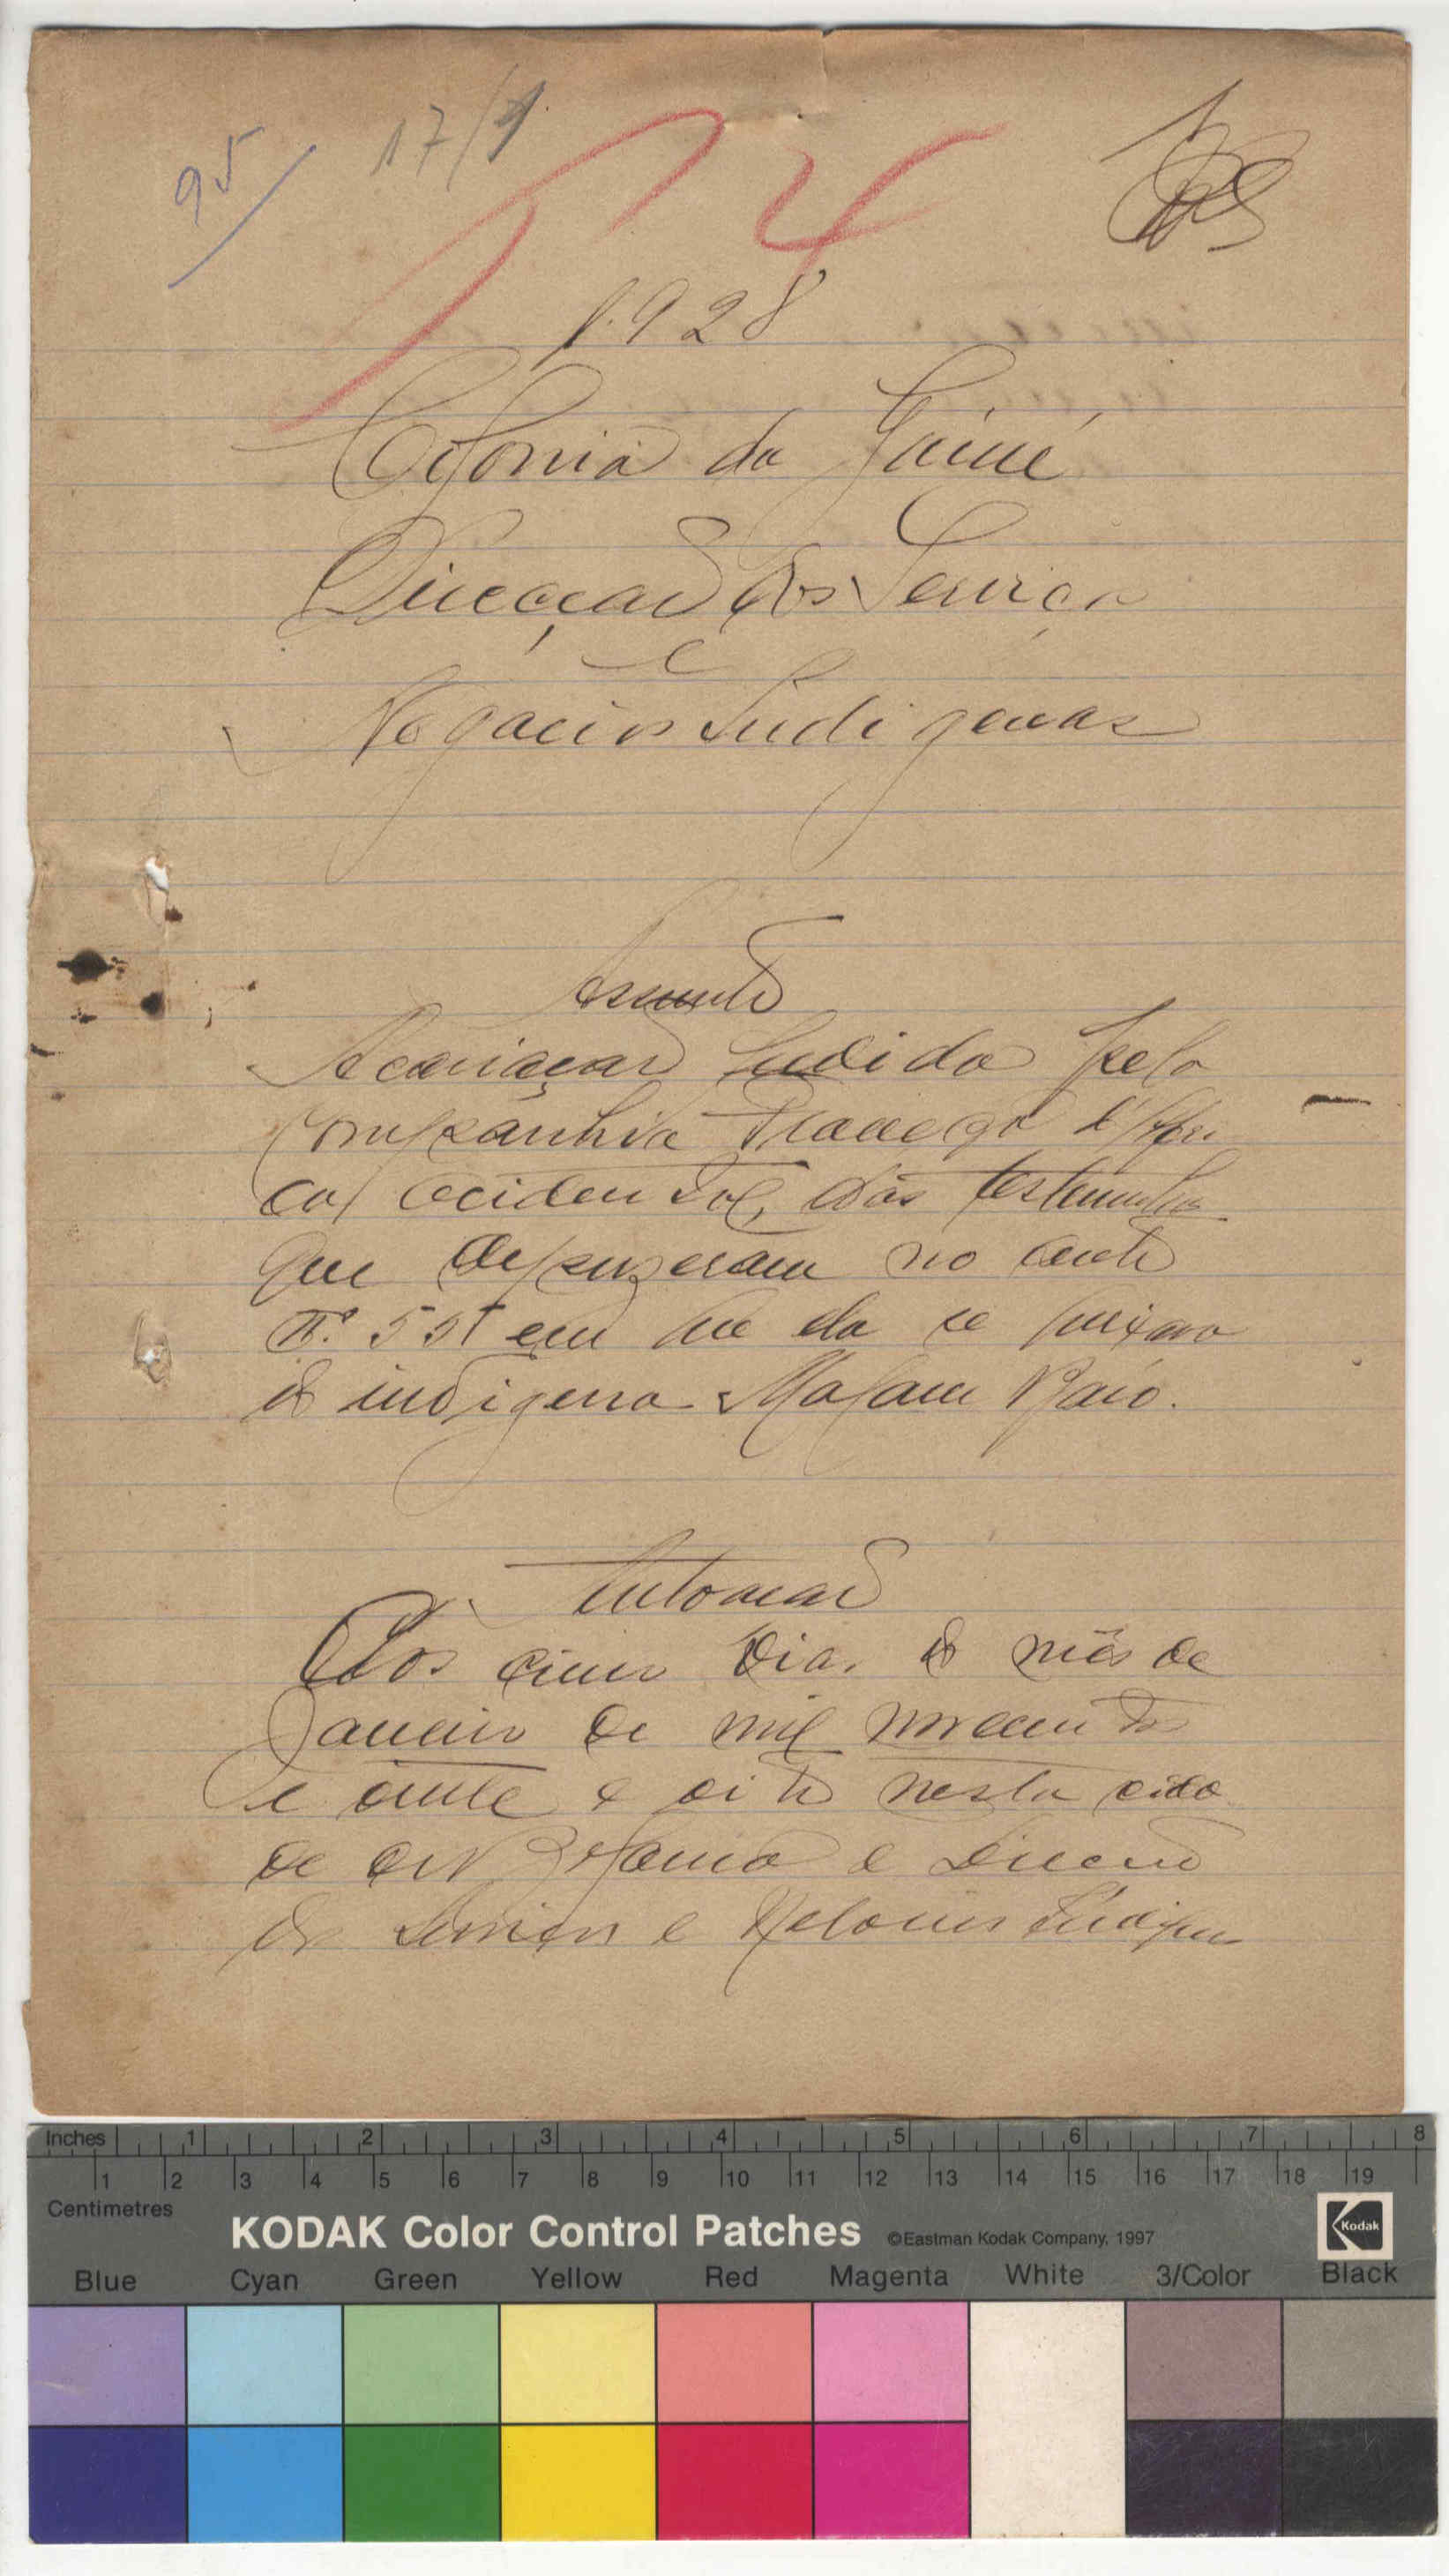 95
17/1
14
1.928
Colonia da Guiné
Direcção dos Serviços
e
Negocios Indigenas
Assunto
Acariação pedida pela
Companhia Franceza d'Afri
ca Ocidental, das testemunhas
que depuzeram no auto
Nº em que ela se queixava
o indigena Malam Baio.
Autoação
Aos cinco dias do mês de
Janeiro de mil novecentos
e vinte e oito nesta cida
de de Bolama e Direcção
dos Serviços e Negocios Indigenas
Inches 1 2 3 4 5 6 7 8
1 2 3 4 5 6 7 8 9 10 11 12 13 14 15 16 17 18 19
Centimetres
KODAK Color Control Patches ©Eastman Kodak Company, 1997 Kodak
Blue Cyan Green Yellow Red Magenta White 3/Color Black